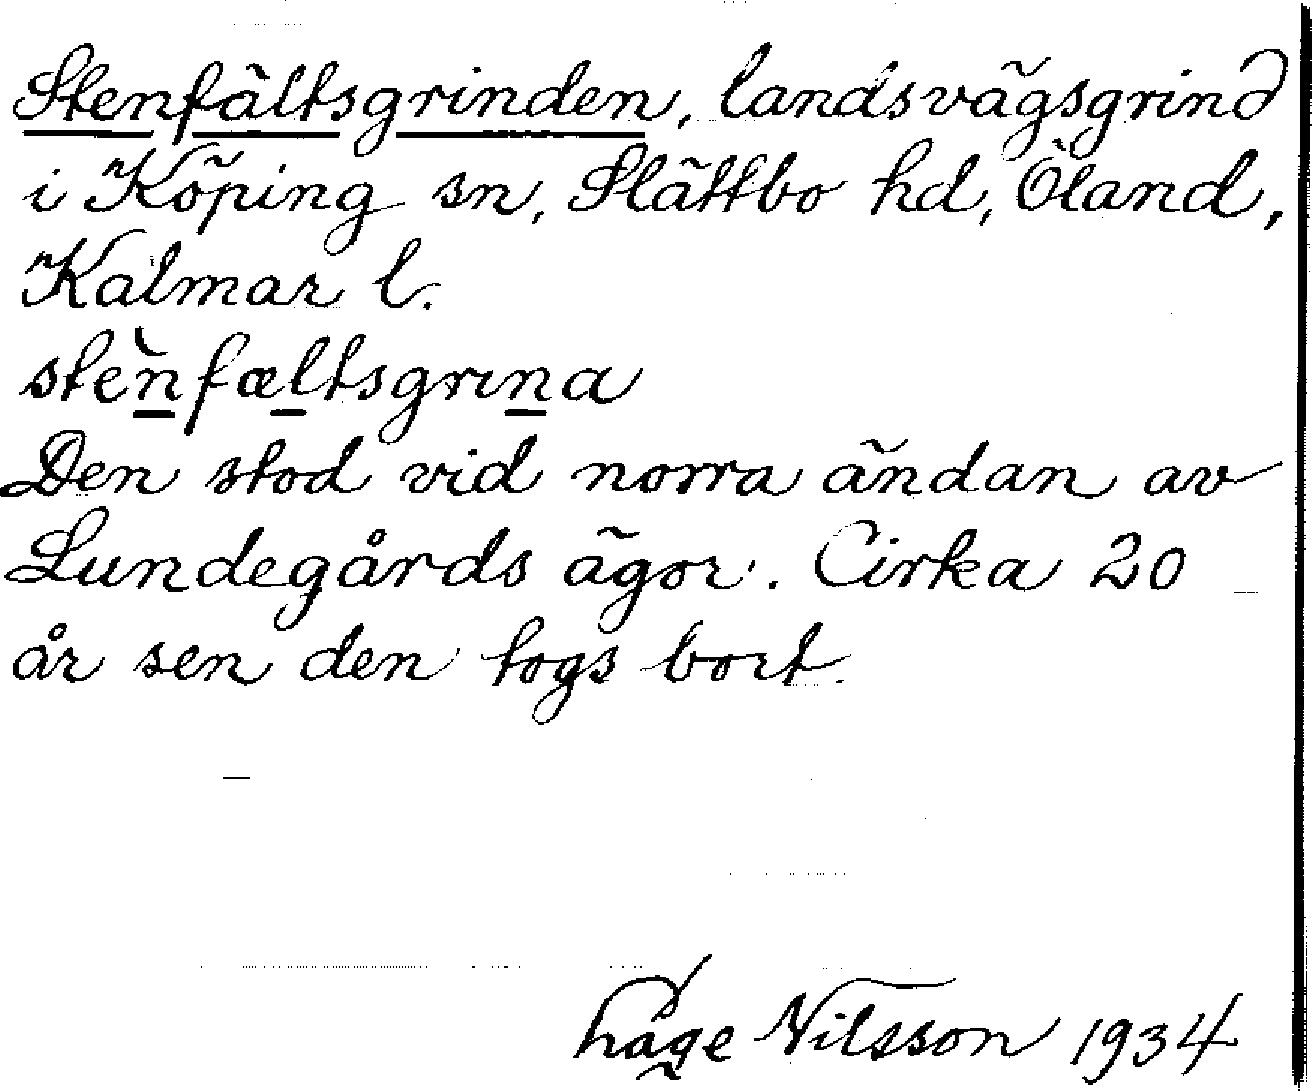 Stenfältsgrinden, landsvägsgrind
i Köping sn, Slättbo hd, Öland,
Kalmar l.
stèn̲fæl̲tsgrın̲a
Den stod vid norra ändan av
Lundegårds ägor. Cirka 20
år sen den togs bort.
Håge Nilsson 1934